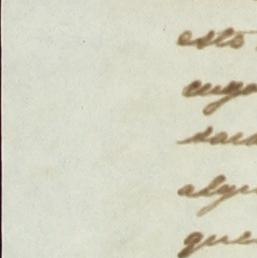 esto
cuyo
sara
algu
que